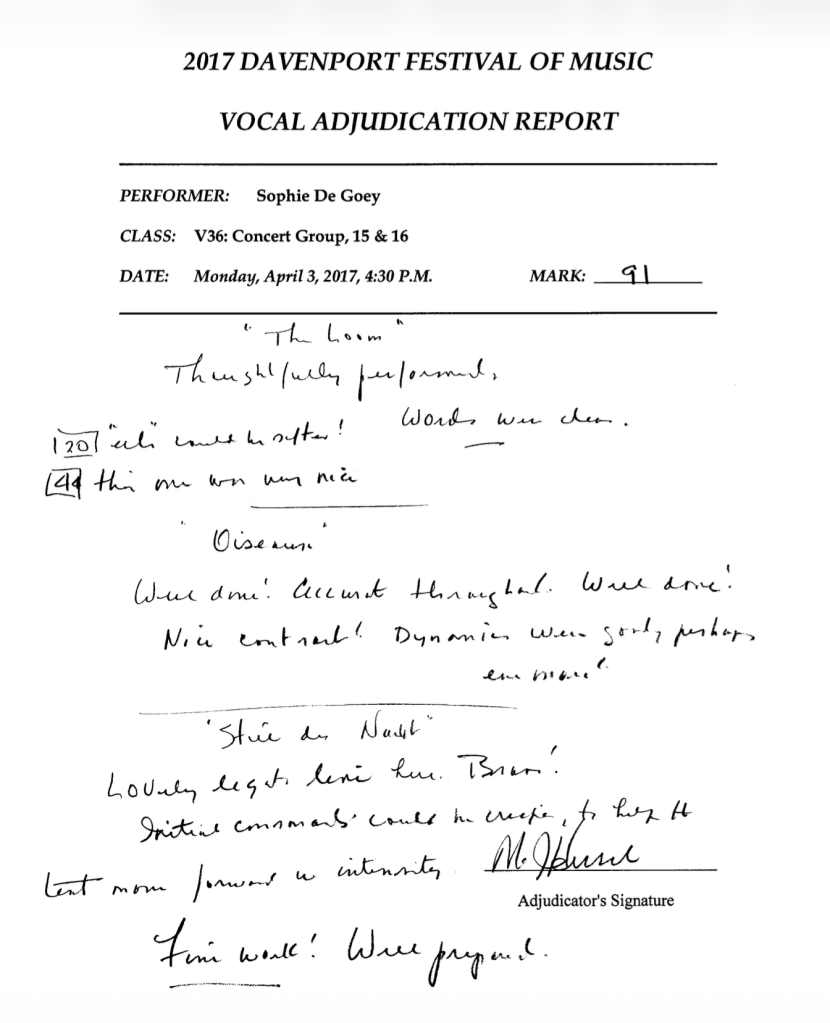 2017 DAVENPORT FESTIVAL OF MUSIC
VOCAL ADJUDICATION REPORT
PERFORMER: Sophie De Goey
CLASS: V36: Concert Group, 15 & 16
DATE: Monday, April 3, 2017, 4:30 P.M. MARK: 91
"The Loom"
Thoughtfully performed.
Words were clear.
20 could be softer!
44 this one was very nice
"Oiseaux"
Well done! Accurate throughout. Well done!
Nice contrast! Dynamics were good, perhaps
even more!
"Stille der Nacht"
Lovely legato line here. Bravo!
Initial consonants could be crisper, to help the
text move forward w intensity
M.
Adjudicator's Signature
Fine work! Well prepared.